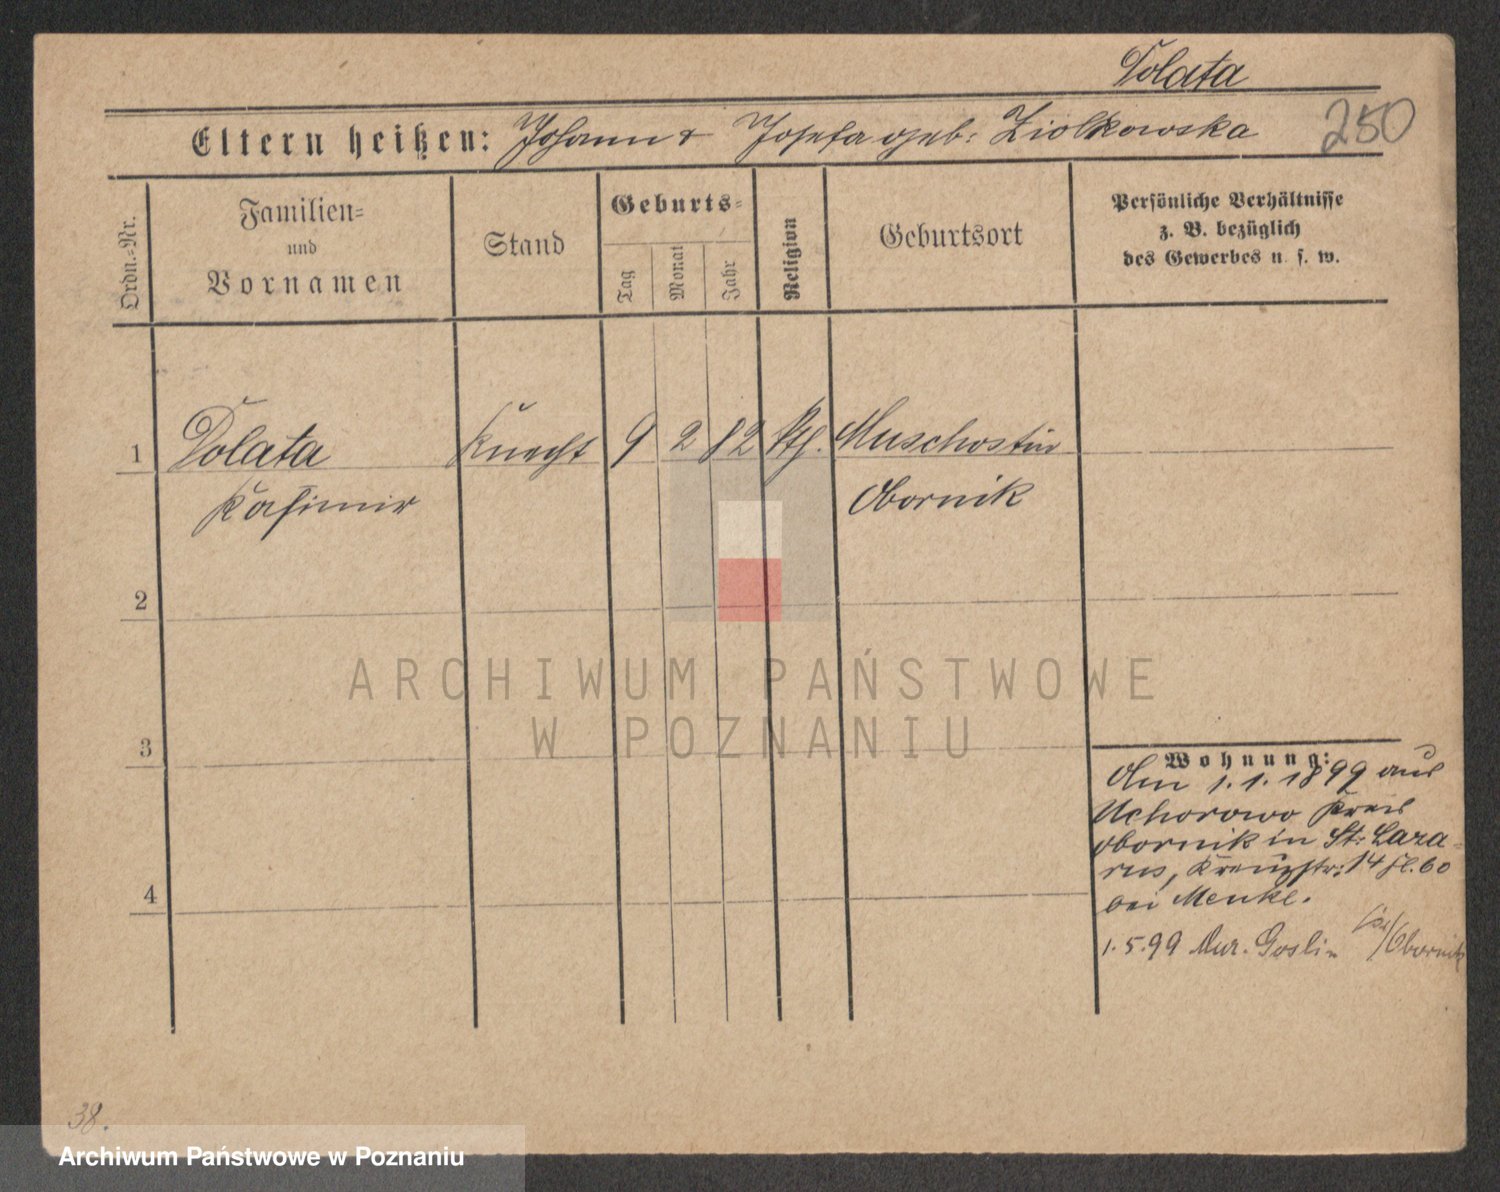 Tolata
Eltern heißen: Johann & Josefa geb: Ziolkowska
250
Ordn.-Nr.
Familien-
und
Vornamen
Stand
Geburts-
Tag
Monat
Jahr
Religion
Geburtsort
Persönliche Verhältnisse
z. B. bezüglich
des Gewerbes u. s. w.
1 Tolata Knecht 9 2 82 kth.
Kasimir Obornik
2
3
4
Wohnung:
Am 1.1.1899 aus
Uchorowo Kreis
Obornik in St. Laza-
rus, Kreuzstr: 14
bei Menke.
1.5.99 Mur. Goslin /Obornik
38.
ARCHIWUM PAŃSTWOWE
W POZNANIU
Archiwum Państwowe w Poznaniu